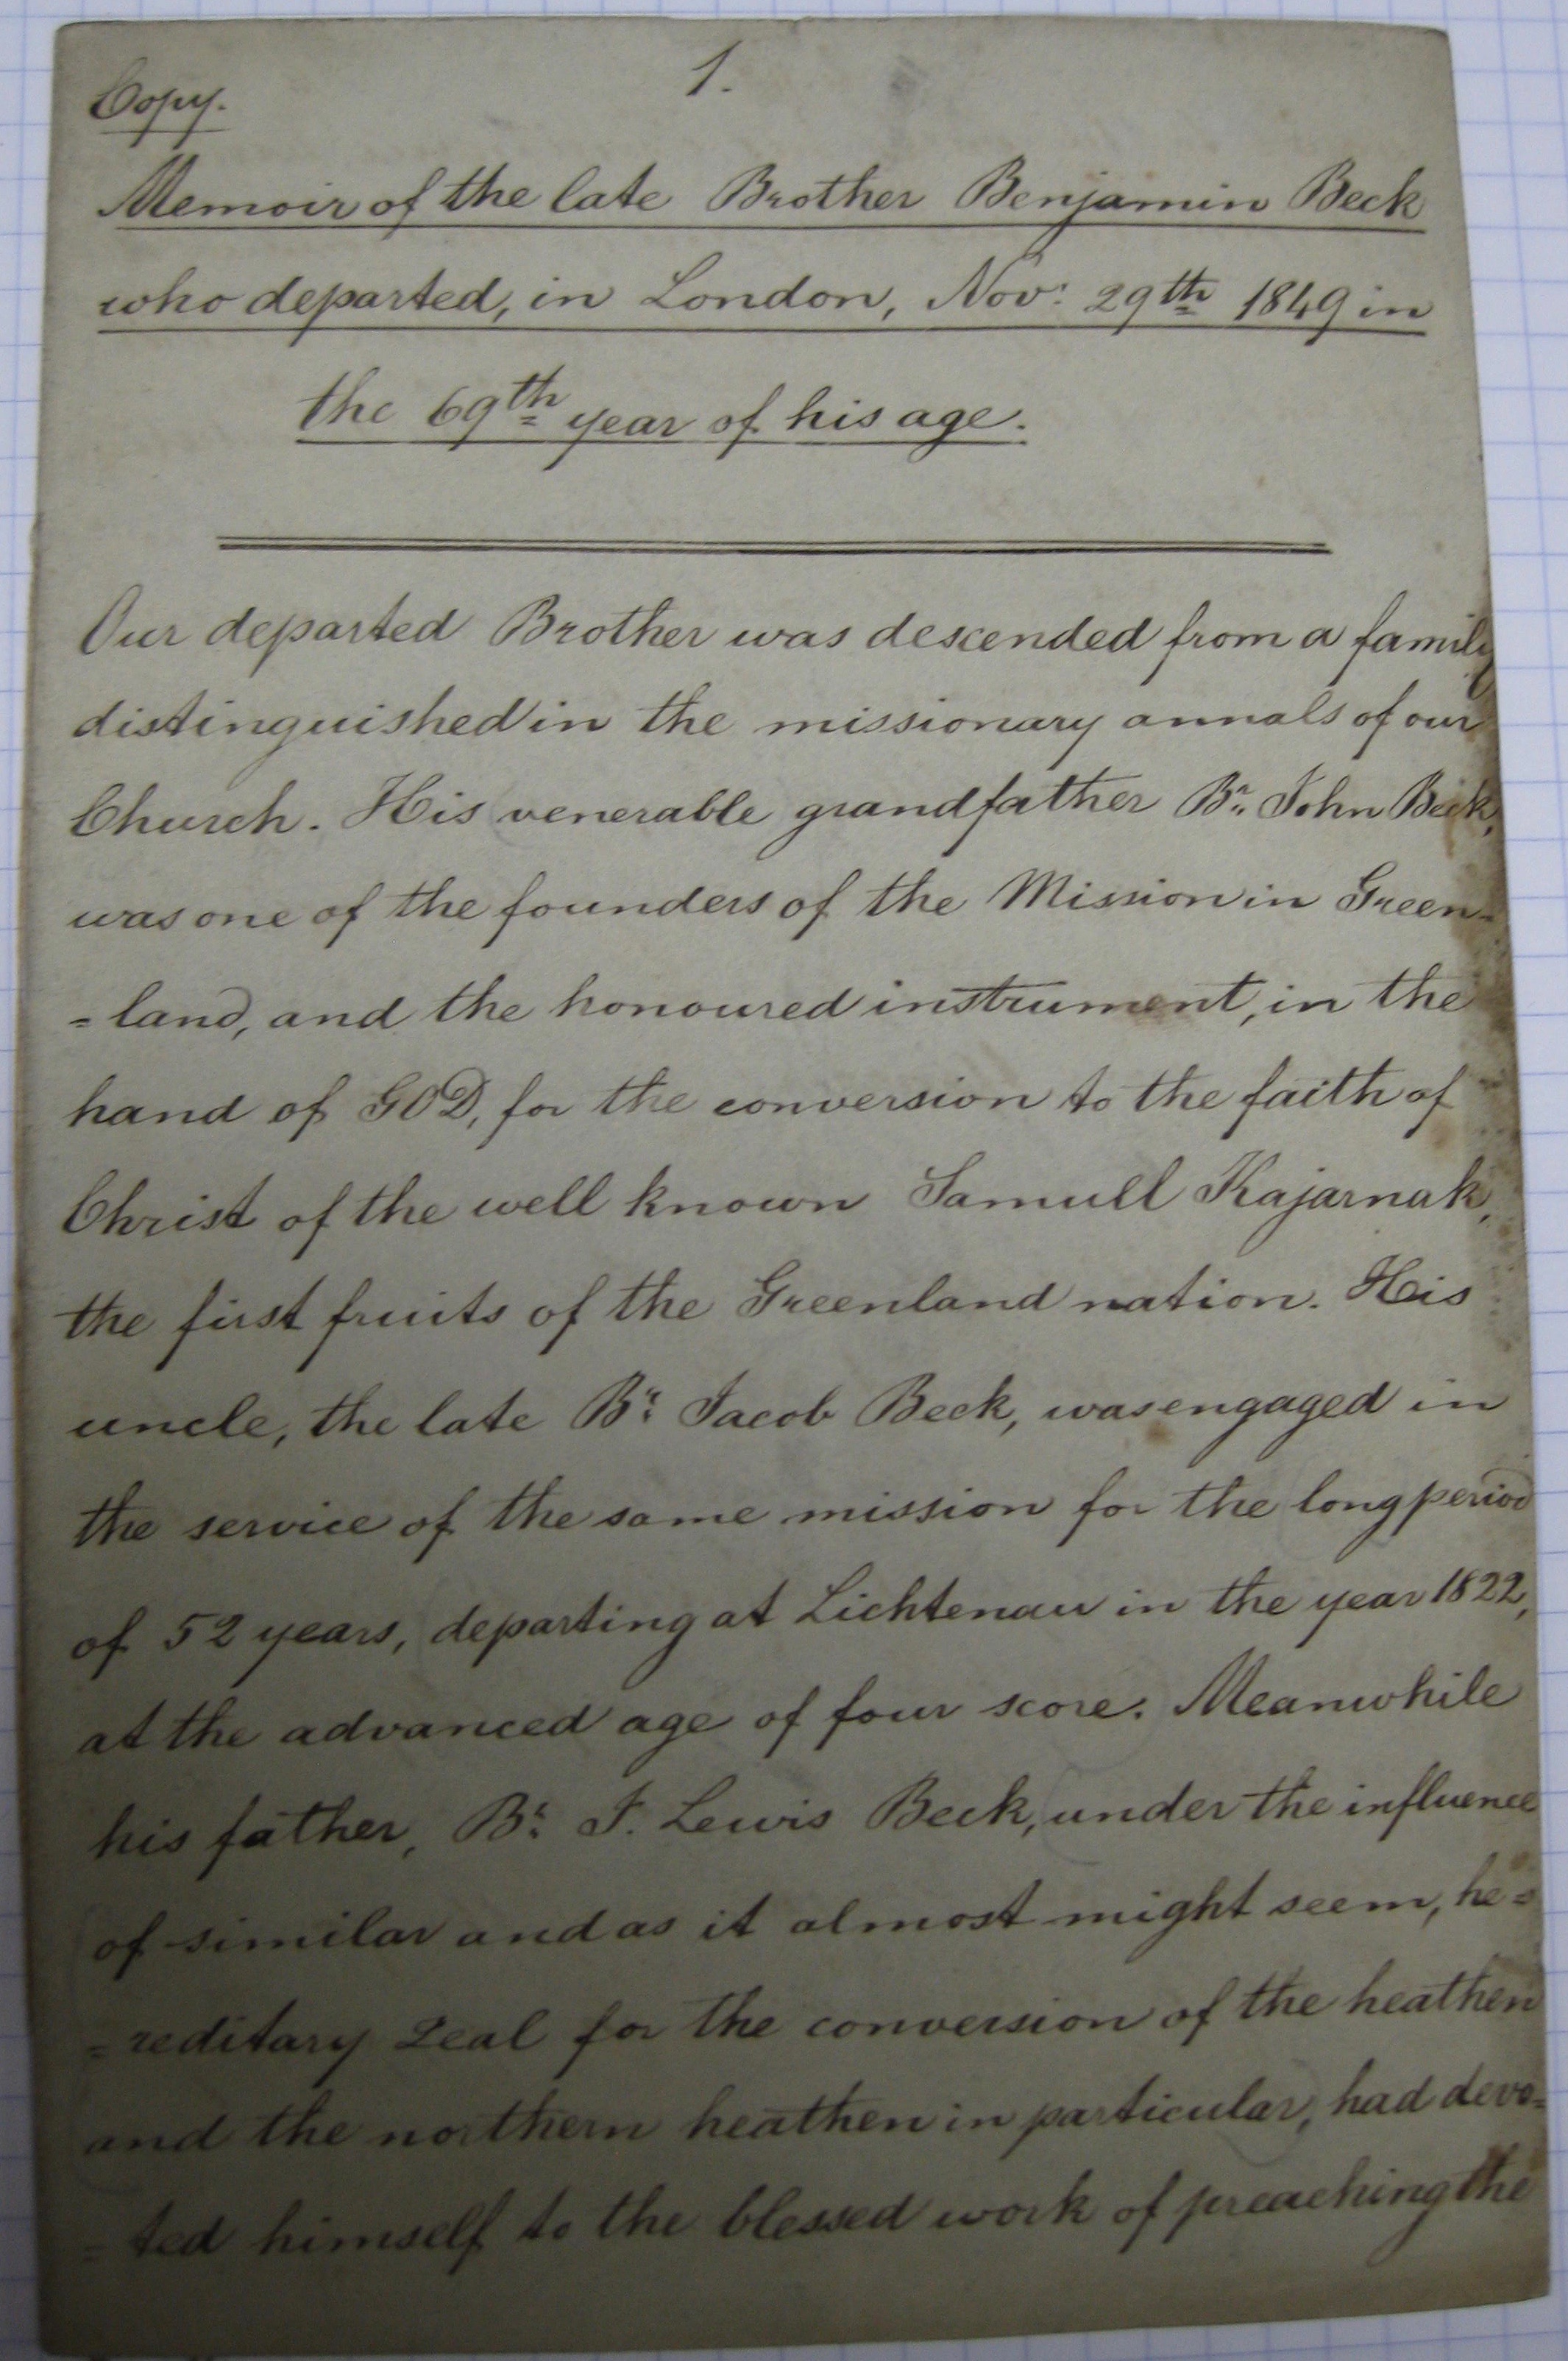 1.
Copy.
Memoir of the late Brother Benjamin Beck
who departed, in London, Novr. 29th 1849 in
the 69th year of his age.
Our departed Brother was descended from a family
distinguished in the missionary annals of our
Church. His venerable grandfather Br. John Beck,
was one of the founders of the Mission in Green=
=land, and the honoured instrument, in the
hand of GOD, for the conversion to the faith of
Christ of the well known Samuel Kajarnak,
the first fruits of the Greenland nation. His
uncle, the late Br. Jacob Beck, was engaged in
the service of the same mission for the long period
of 52 years, departing at Lichtenau in the year 1822,
at the advanced age of four score. Meanwhile
his father, Br. J. Lewis Beck, under the influence
of similar and as it almost might seem, he=
=reditary zeal for the conversion of the heathen
and the northern heathen in particular, had devo=
=ted himself to the blessed work of preaching the